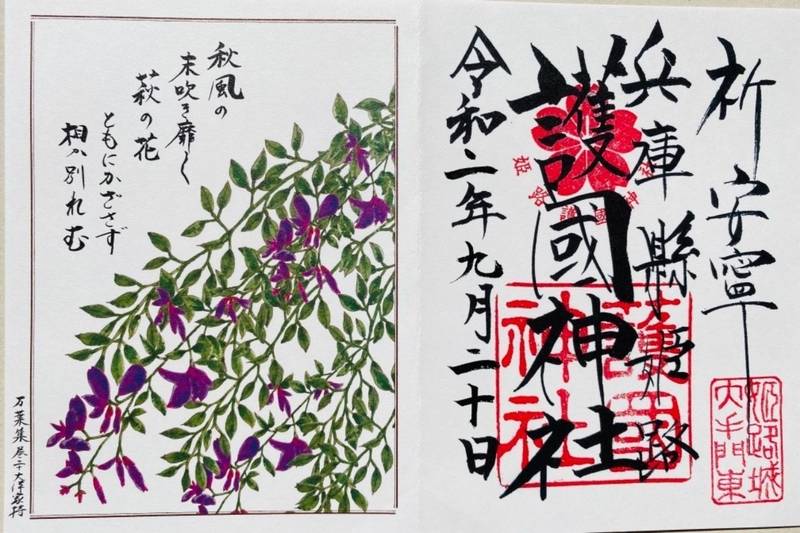 祈安寧
兵庫縣姫路
護國神社
令和二年九月二十日
護國
神社
姫路城
大手門東
秋風の
末吹き靡く
萩の花
ともにかざさず
相か別れむ
万葉集 巻二十 大伴家持